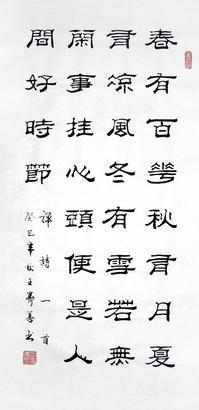 春有百華秋有月夏
有涼風冬有雪若無
閑事挂心頭便是人
間好時節
禪詩一首
癸巳年